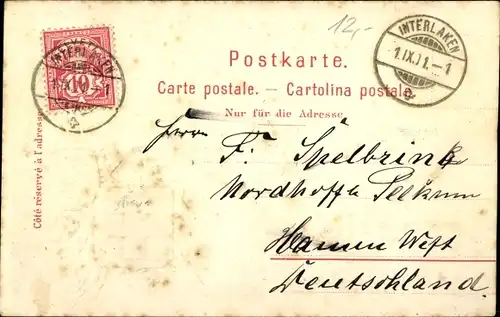 12,-
INTERLAKEN
1.IX.01.-1
INTERLAKEN
10
Postkarte.
Carte postale. — Cartolina postale.
Nur für die Adresse.
Côté réservé à l'adresse.
Herrn
F. Spelbrink
Nordhoff
Hamm West
Deutschland.